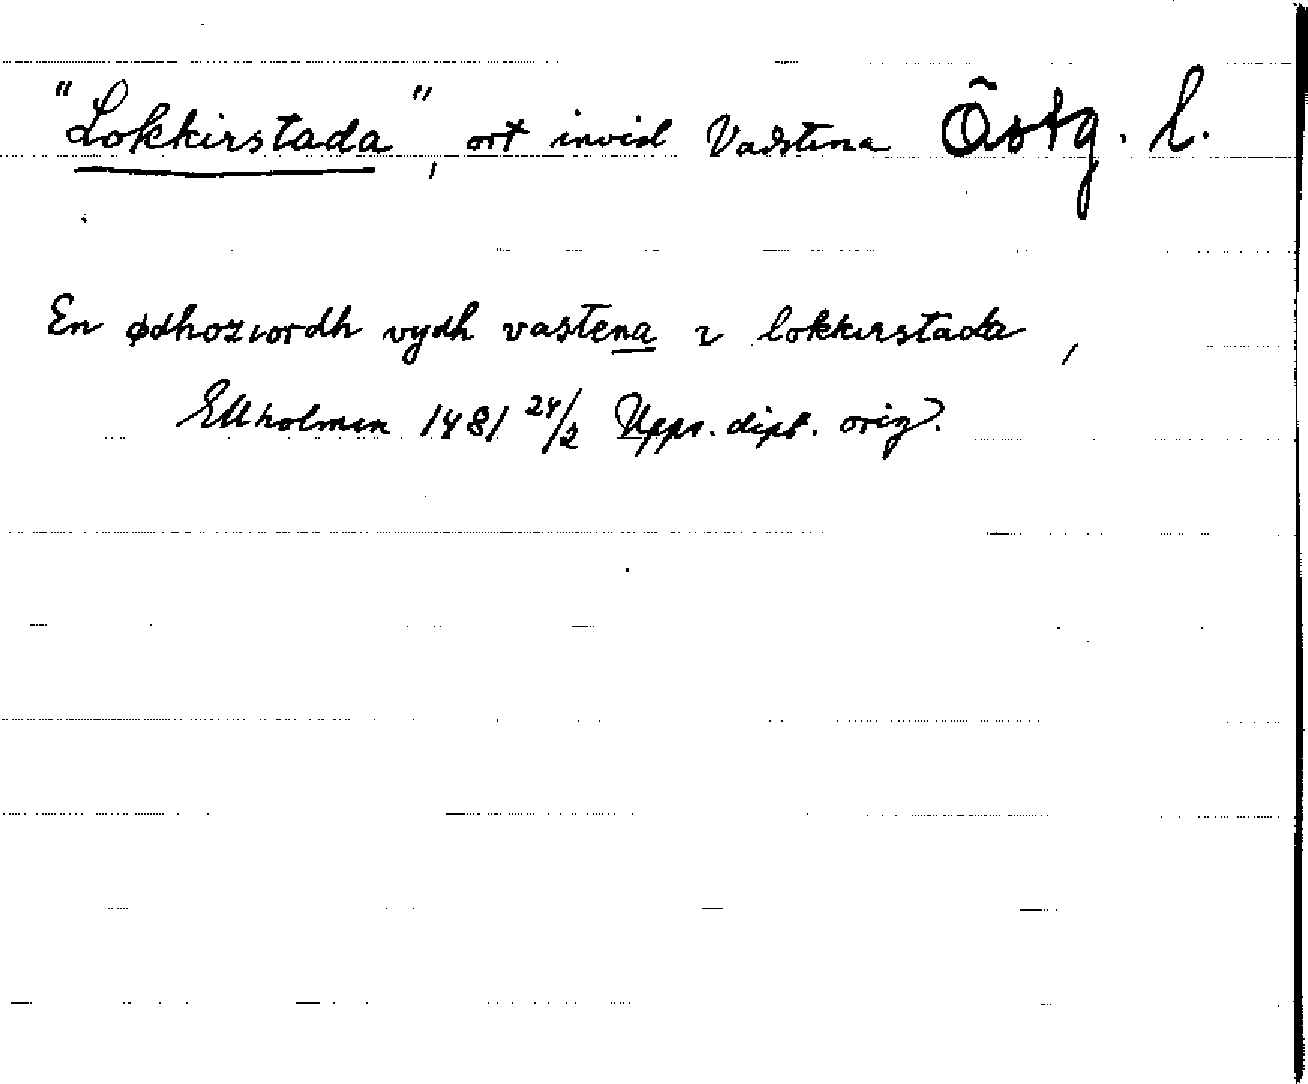 "Lokkirstada", ort invid Vadstena Östg. l.
En ødhoziordh vydh vastena i lokkirstada,
Ekholmen 1481 24/2 Upps. dipl. orig.